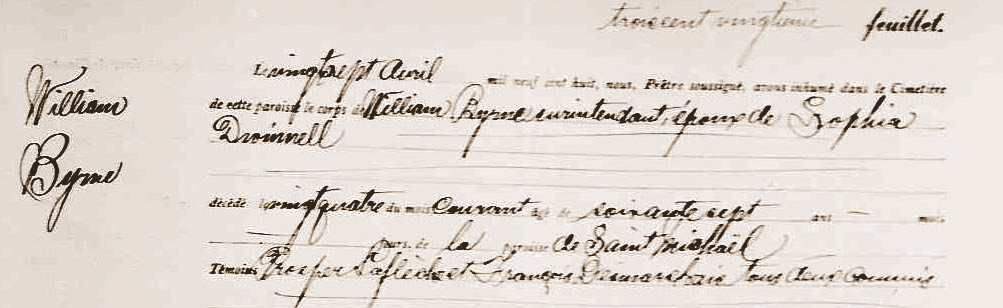 troiscent vingtième feuillet.
William
Byrne
Le vingt sept Avril mil neuf cent huit, nous, Prêtre soussigné, avons inhumé dans le Cimetière
de cette paroisse le corps de William Byrne surintendant, époux de Sophia
décédé le vingt quatre du mois courant âgé de soixante sept ans — mois
jours de la paroisse de Saint Michaël
Témoins Prosper Laflèche et François Desmarchais tous deux commis